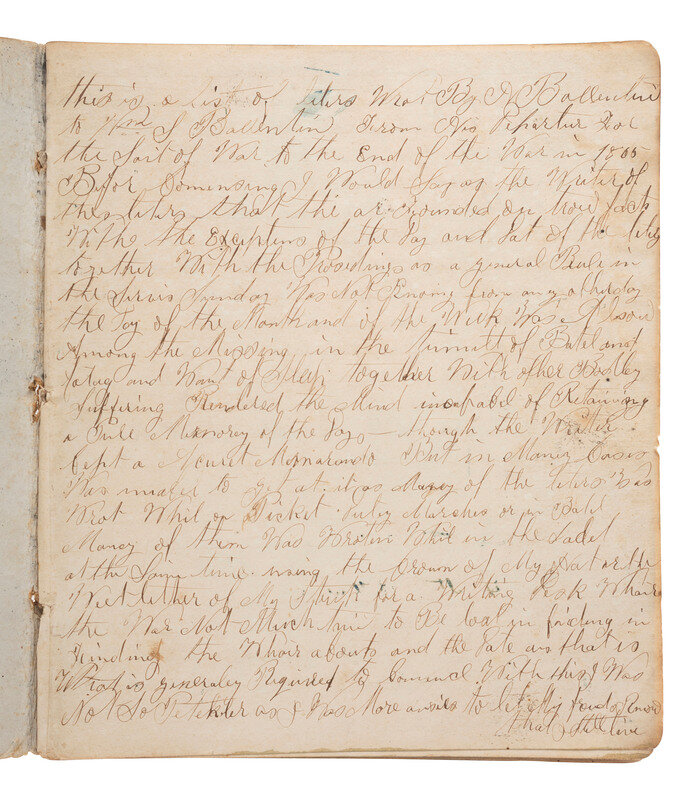 this is a List of leters Wrot By A Ballentine
to Wm S Ballentin From His Departur For
the Seat of War to the End of the War in 1865
Befor Comensing I Would Say as the Writer of
thes leters that the ar Grounded on trew facts
With the the Exceptions of the Day and Dat of the
together With the Prosedings as a general Rule in
the Servis Sunday Was Not Knowing from any other day
the Day of the Month and of the Week Was Also
Among the Missing in the of Batel and
fatug and Want of Sleep together With other Bodley
Suffering Rendered the Mind incapabel of Retaining
a Memorey of the Days though the Writer
Kept a Memarando But in Maney Cases
Was to get at it as Maney of the leters Was
Wrot Whil on Picket Dutey Marches or in Batel
Maney of them Was Writen Whil in the Sadel
at the Same time using the Crown of My Hat or the
lether of My for a Writing Desk
the War Not Much time to Be lost in
finding the Whair abouts and the Date as that is
What is generaley Required to Comenc With this I Was
Not So as I Was More to let My frends Know
that I Still live